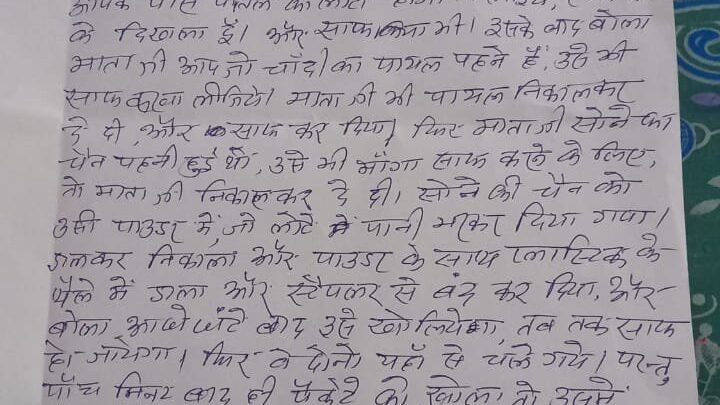 आपके पास पीतल का लोटा होगा
के दिखाता हूँ। और साफ किया भी। इसके बाद बोला
माता जी आप जो चाँदी का पायल पहने हैं, उसे भी
साफ करवा लीजिये। माता जी भी पायल निकालकर
दे दी, और साफ कर दिया, फिर माता जी सोने का
चैन पहनी हुई थी, उसे भी माँगा साफ करने के लिए,
तो माता जी निकालकर दे दी। सोने की चैन को
उसी पाउडर में, जो लोटे में पानी भरकर दिया गया।
डालकर निकाला और पाउडर के साथ प्लास्टिक के
थैले में डाला और स्टैपलर से बंद कर दिया, और
बोला आधे घंटे बाद इसे खोलियेगा, तब तक साफ
हो जायेगा। फिर वे दोनो यहाँ से चले गये। परन्तु
पाँच मिनट बाद ही पैकेट को खोला तो उसमें